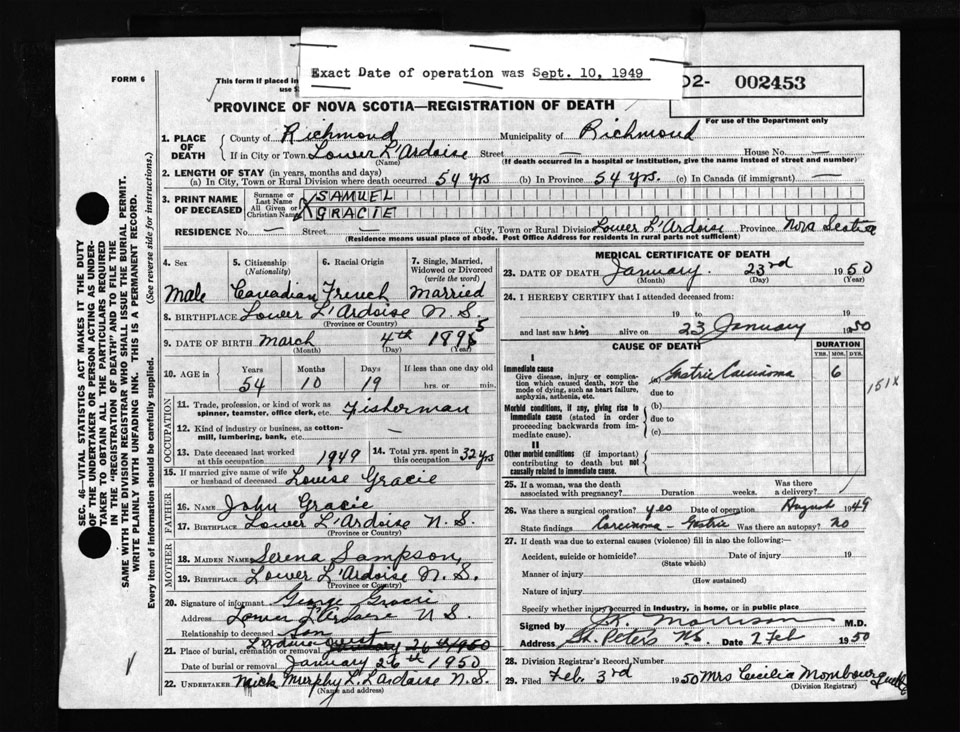 Exact Date of operation was Sept. 10, 1949
FORM 6
This form if placed in
002453
For use of the Department only
PROVINCE OF NOVA SCOTIA—REGISTRATION OF DEATH
1. PLACE OF DEATH County of Richmond Municipality of Richmond
If in City or Town Lower L'Ardoise Street — House No. —
(Name) (If death occurred in a hospital or institution, give the name instead of street and number)
2. LENGTH OF STAY (in years, months and days)
(a) In City, Town or Rural Division where death occurred 54 yrs (b) In Province 54 yrs. (c) In Canada (if immigrant) —
3. PRINT NAME OF DECEASED Surname or Last Name SAMUEL
All Given or Christian Names GRACIE
RESIDENCE No. — Street — City, Town or Rural Division Lower L'Ardoise Province Nova Scotia
(Residence means usual place of abode. Post Office Address for residents in rural parts not sufficient)
SEC. 46—VITAL STATISTICS ACT MAKES IT THE DUTY
OF THE UNDERTAKER OR PERSON ACTING AS UNDERTAKER TO OBTAIN ALL THE PARTICULARS REQUIRED
IN THE "REGISTRATION OF DEATH" AND TO FILE THE
SAME WITH THE DIVISION REGISTRAR WHO SHALL ISSUE THE BURIAL PERMIT.
WRITE PLAINLY WITH UNFADING INK. THIS IS A PERMANENT RECORD.
Every item of information should be carefully supplied. (See reverse side for instructions.)
4. Sex 5. Citizenship (Nationality) 6. Racial Origin 7. Single, Married, Widowed or Divorced (write the word)
Male Canadian French Married
8. BIRTHPLACE Lower L'Ardoise N.S.
(Province or Country)
9. DATE OF BIRTH March 4th 1895
(Month) (Day) (Year)
10. AGE in Years Months Days If less than one day old
54 10 19 hrs. or min.
OCCUPATION
11. Trade, profession, or kind of work as spinner, teamster, office clerk, etc. Fisherman
12. Kind of industry or business, as cotton-mill, lumbering, bank, etc. —
13. Date deceased last worked at this occupation 1949 14. Total yrs. spent in this occupation 32 yrs
15. If married give name of wife or husband of deceased Louise Gracie
FATHER
16. Name John Gracie
17. BIRTHPLACE Lower L'Ardoise N.S.
(Province or Country)
MOTHER
18. MAIDEN NAME Serena Sampson
19. BIRTHPLACE Lower L'Ardoise N.S.
(Province or Country)
20. Signature of informant George Gracie
Address Lower L'Ardoise N S.
Relationship to deceased Son
21. Place of burial, cremation or removal
Date of burial or removal January 26th 1950
22. UNDERTAKER Mick Murphy L. L'ardoise N.S.
(Name and address)
MEDICAL CERTIFICATE OF DEATH
23. DATE OF DEATH January 23rd 1950
(Month) (Day) (Year)
24. I HEREBY CERTIFY that I attended deceased from:
19 to 19
and last saw him alive on 23 January 1950
CAUSE OF DEATH DURATION
YRS. MOS. DYS.
I
Immediate cause
Give disease, injury or complication which caused death, NOT the mode of dying, such as heart failure, asphyxia, asthenia, etc.
(a) Gastric Carcinoma 6
due to
151X
Morbid conditions, if any, giving rise to immediate cause (stated in order proceeding backwards from immediate cause).
(b)
due to
(c)
II
Other morbid conditions (if important) contributing to death but not causally related to immediate cause.
25. If a woman, was the death associated with pregnancy? Duration weeks. Was there a delivery?
26. Was there a surgical operation? yes Date of operation August 1949
State findings Carcinoma - Gastric Was there an autopsy? No
27. If death was due to external causes (violence) fill in also the following:—
Accident, suicide or homicide? Date of injury 19
(State which)
Manner of injury
(How sustained)
Nature of injury
Specify whether injury occurred in industry, in home, or in public place
Signed by Morrison M.D.
Address St. Peters N.S. Date 2 Feb 1950
28. Division Registrar's Record Number
29. Filed Feb. 3rd 1950 Mrs Cecilia Mombourquette
(Division Registrar)